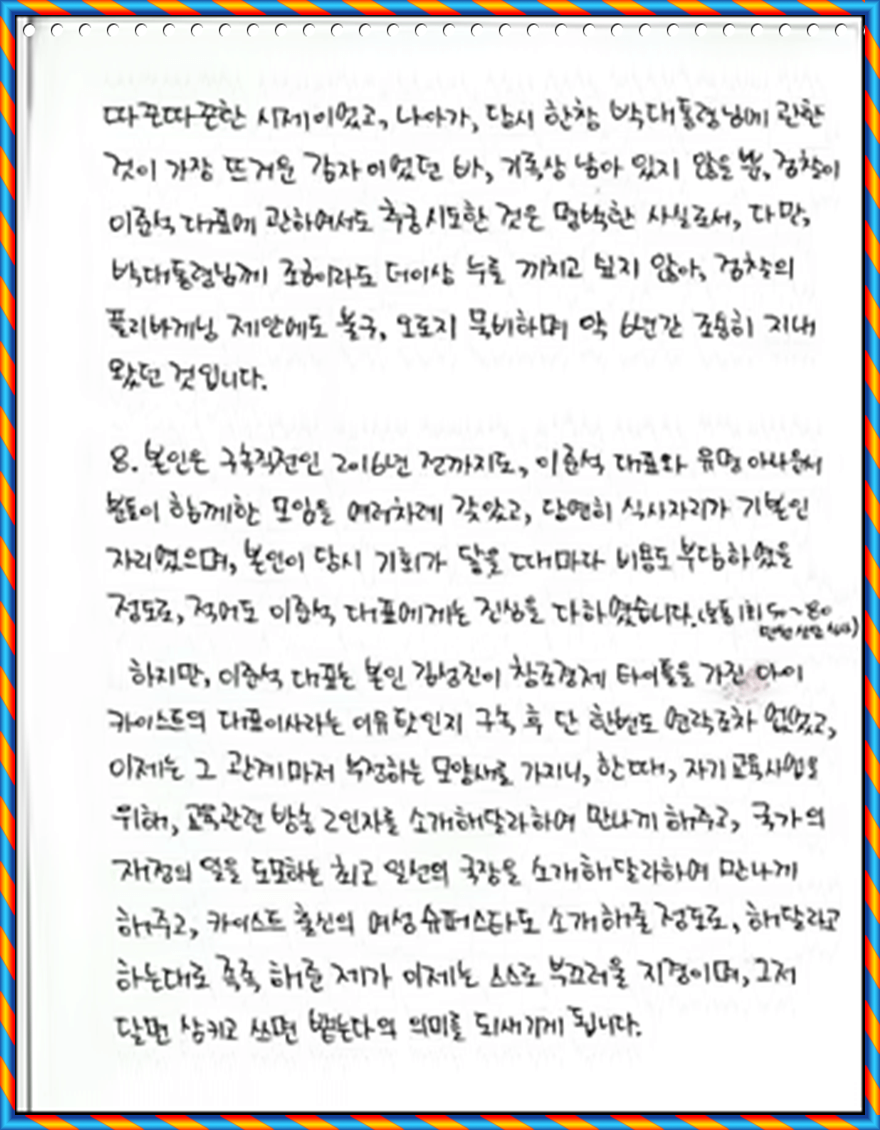 따끈따끈한 시제이었고, 나아가, 당시 한창 박대통령님에 관한
것이 가장 뜨거운 감자이었던 바, 기록상 남아 있지 않을 뿐, 검찰이
이준석 대표에 관하여서도 추궁시도한 것은 명백한 사실로서, 다만,
박대통령님께 조금이라도 더이상 누를 끼치고 싶지 않아, 검찰의
플리바게닝 제안에도 불구, 오로지 묵비하며 약 6년간 조용히 지내
왔던 것입니다.
8. 본인은 구속직전인 2016년 전까지도, 이준석 대표와 유명 아나운서
분들이 함께한 모임을 여러차례 갖았고, 당연히 식사자리가 기본인
자리였으며, 본인이 당시 기회가 닿을 때마다 비용도 부담하였을
정도로, 적어도 이준석 대표에게는 진심을 다하였습니다. (보통 1회 50~80
만원 상당 식사)
하지만, 이준석 대표는 본인 김성진이 창조경제 타이틀을 가진 아이
카이스트의 대표이사라는 이유 탓인지 구속 후 단 한번도 연락조차 없었고,
이제는 그 관계마저 부정하는 모양새로 가지니, 한때, 자기 교육사업을
위해, 교육관련 방송 2인자를 소개해달라하여 만나게 해주고, 국가의
재정의 일을 도모하는 최고 일선의 국장을 소개해달라하여 만나게
해주고, 카이스트 출신의 여성 슈퍼스타도 소개해줄 정도로, 해달라고
하는대로 족족 해준 제가 이제는 스스로 부끄러울 지경이며, 그저
달면 삼키고 쓰면 뱉는다의 의미를 되새기게 됩니다.